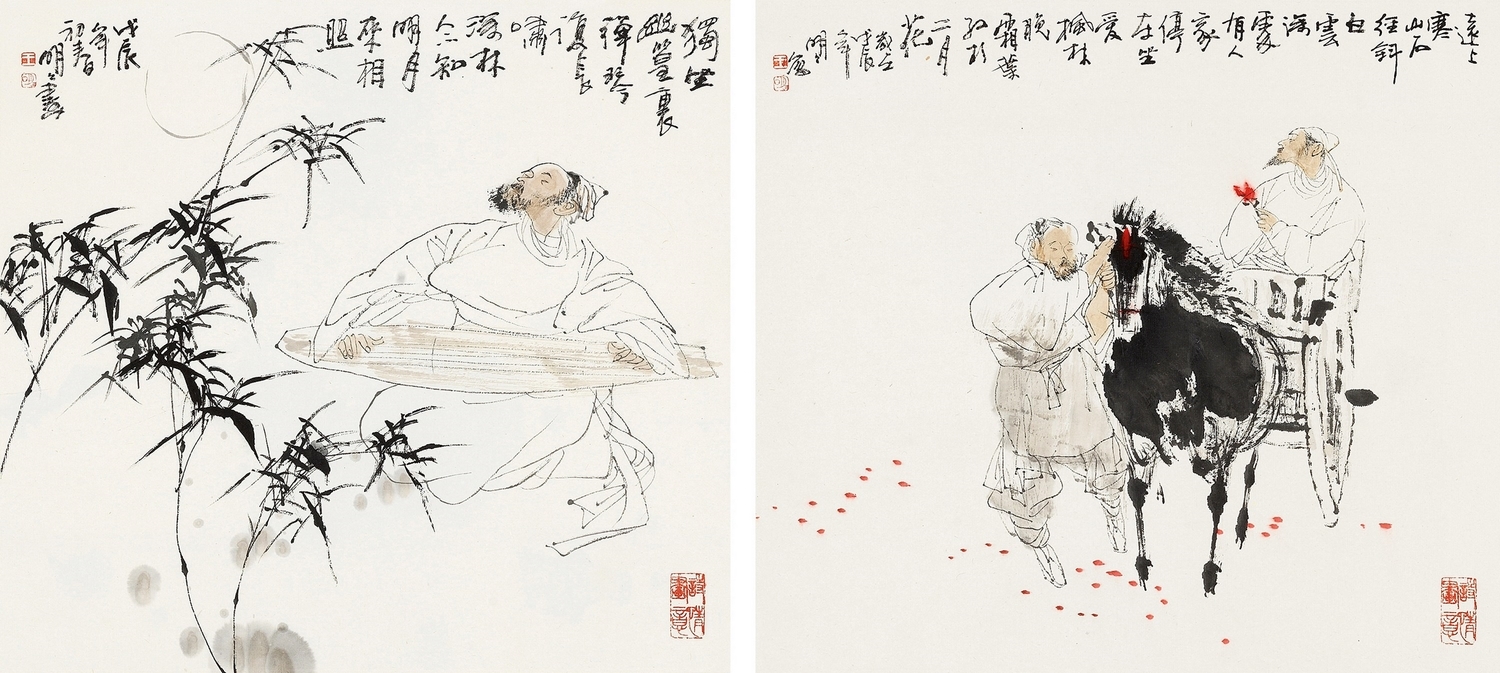 獨坐
幽篁裏
彈琴
復長
嘯
深林
人不知
明月
來相
照
戊辰
年
初春
明明畫
詩情
畫意
遠上
寒
山石
徑斜
白
雲
深
處
有人
家
停
車坐
愛
楓林
晚
霜葉
紅於
二月
花
歲在
戊辰
年
明明
寫
詩情
畫意